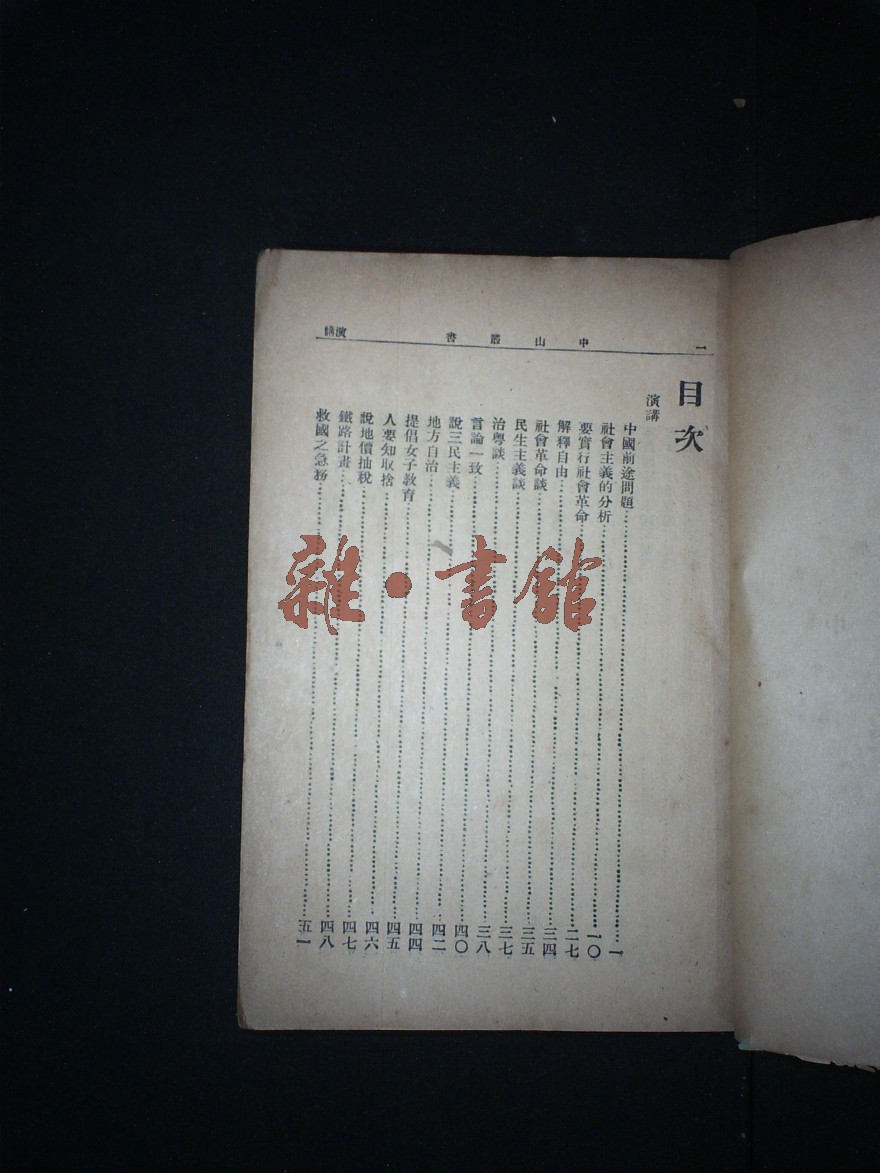 一 中山叢書 演講
目次
演講
中國前途問題……一
社會主義的分析……一〇
要實行社會革命……二七
解釋自由……三四
社會革命談……三五
民生主義談……三七
治粵談……三八
言論一致……四〇
說三民主義……四二
地方自治……四四
提倡女子教育……四五
人要知取捨……四六
說地價抽稅……四七
鐵路計畫……四八
救國之急務……五一
雜·書館